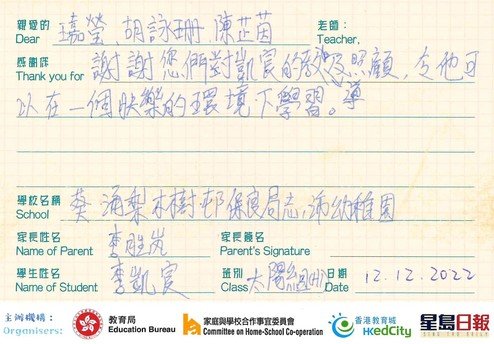 親愛的 老師：
Dear 瑧瑩, 胡詠珊, 陳芷茵 Teacher,
感謝您
Thank you for 謝謝您們對凱宸的教及照顧，令他可
導
以在一個快樂的環境下學習。
學校名稱
School 葵涌梨木樹邨保良局志沛幼稚園
家長姓名 家長簽名
Name of Parent 李胜岚 Parent's Signature
學生姓名 班別 日期
Name of Student 李凱宸 Class 太陽組(H) Date 12.12.2022
主辦機構：
Organisers:
教育局
Education Bureau
家庭與學校合作事宜委員會
Committee on Home-School Co-operation
香港教育城
HKedCity
星島日報
SING TAO DAILY